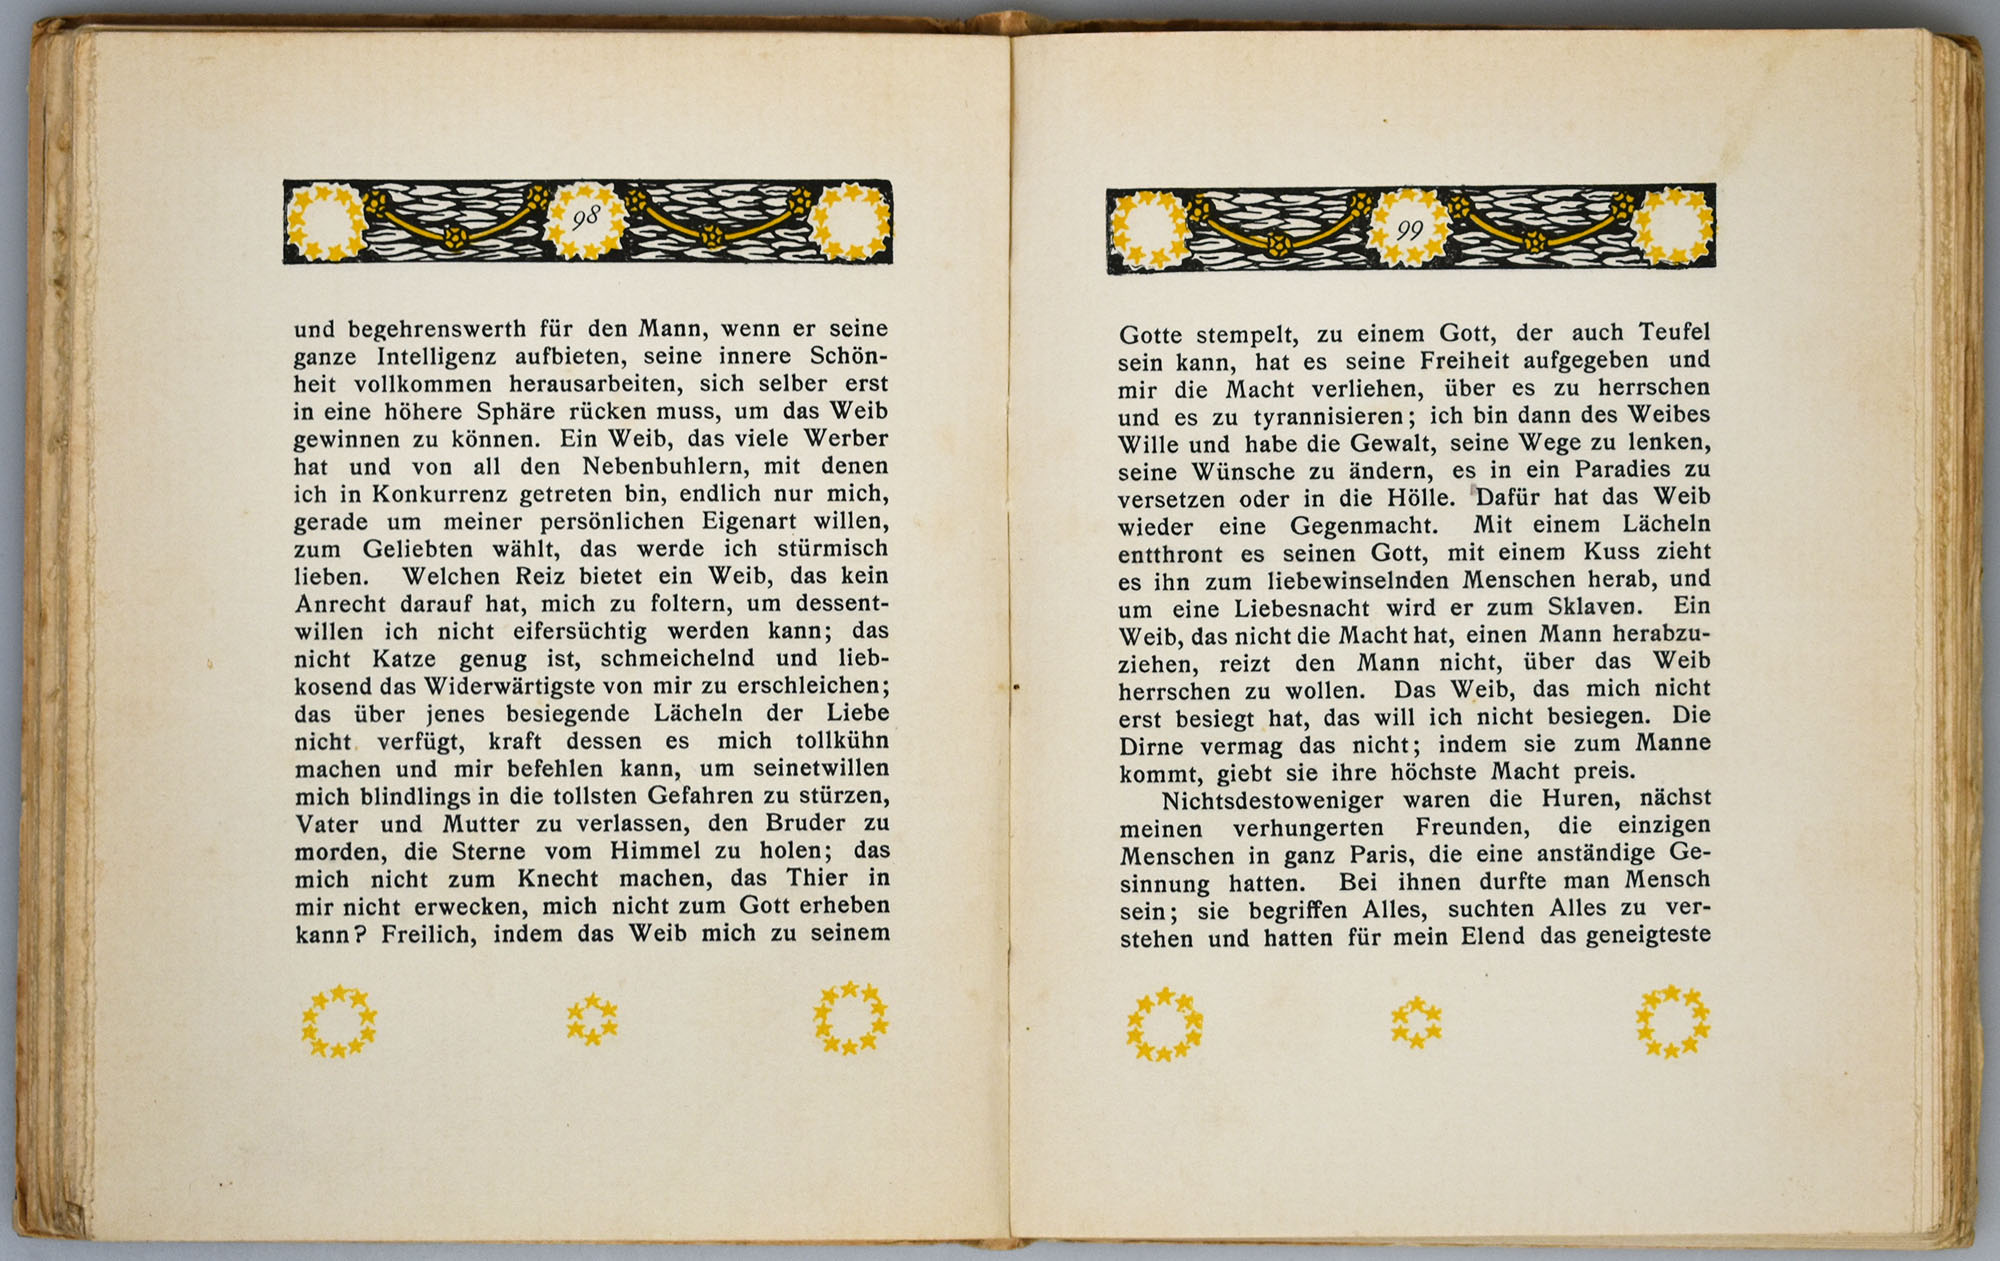 98
und begehrenswerth für den Mann, wenn er seine
ganze Intelligenz aufbieten, seine innere Schön-
heit vollkommen herausarbeiten, sich selber erst
in eine höhere Sphäre rücken muss, um das Weib
gewinnen zu können. Ein Weib, das viele Werber
hat und von all den Nebenbuhlern, mit denen
ich in Konkurrenz getreten bin, endlich nur mich,
gerade um meiner persönlichen Eigenart willen,
zum Geliebten wählt, das werde ich stürmisch
lieben. Welchen Reiz bietet ein Weib, das kein
Anrecht darauf hat, mich zu foltern, um dessent-
willen ich nicht eifersüchtig werden kann; das
nicht Katze genug ist, schmeichelnd und lieb-
kosend das Widerwärtigste von mir zu erschleichen;
das über jenes besiegende Lächeln der Liebe
nicht verfügt, kraft dessen es mich tollkühn
machen und mir befehlen kann, um seinetwillen
mich blindlings in die tollsten Gefahren zu stürzen,
Vater und Mutter zu verlassen, den Bruder zu
morden, die Sterne vom Himmel zu holen; das
mich nicht zum Knecht machen, das Thier in
mir nicht erwecken, mich nicht zum Gott erheben
kann? Freilich, indem das Weib mich zu seinem
99
Gotte stempelt, zu einem Gott, der auch Teufel
sein kann, hat es seine Freiheit aufgegeben und
mir die Macht verliehen, über es zu herrschen
und es zu tyrannisieren; ich bin dann des Weibes
Wille und habe die Gewalt, seine Wege zu lenken,
seine Wünsche zu ändern, es in ein Paradies zu
versetzen oder in die Hölle. Dafür hat das Weib
wieder eine Gegenmacht. Mit einem Lächeln
entthront es seinen Gott, mit einem Kuss zieht
es ihn zum liebewinselnden Menschen herab, und
um eine Liebesnacht wird er zum Sklaven. Ein
Weib, das nicht die Macht hat, einen Mann herabzu-
ziehen, reizt den Mann nicht, über das Weib
herrschen zu wollen. Das Weib, das mich nicht
erst besiegt hat, das will ich nicht besiegen. Die
Dirne vermag das nicht; indem sie zum Manne
kommt, giebt sie ihre höchste Macht preis.
Nichtsdestoweniger waren die Huren, nächst
meinen verhungerten Freunden, die einzigen
Menschen in ganz Paris, die eine anständige Ge-
sinnung hatten. Bei ihnen durfte man Mensch
sein; sie begriffen Alles, suchten Alles zu ver-
stehen und hatten für mein Elend das geneigteste